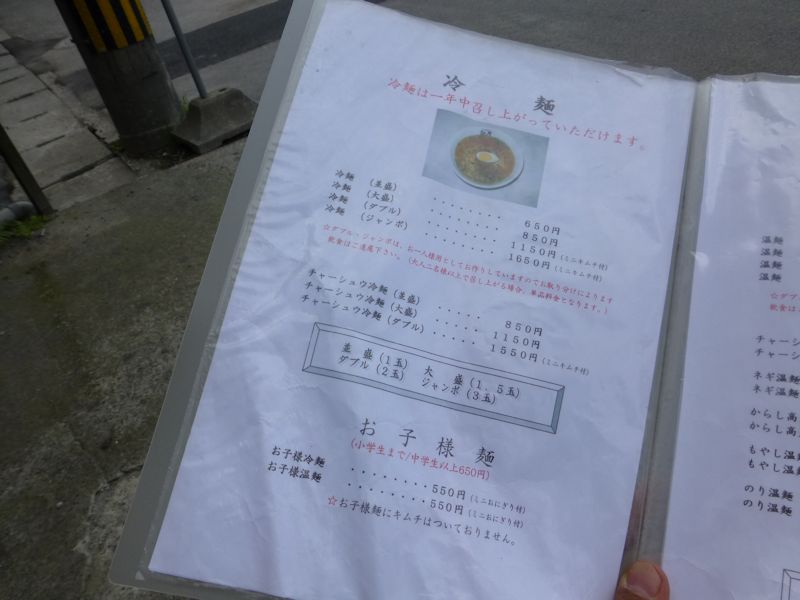 冷　麺
冷麺は一年中召し上がっていただけます。
冷麺　（並盛）・・・・・・・・650円
冷麺　（大盛）・・・・・・・・850円
冷麺　（ダブル）・・・・・・・・1150円（ミニキムチ付）
冷麺　（ジャンボ）・・・・・・・・1650円（ミニキムチ付）
☆ダブル・ジャンボは、お一人様用としてお作りしていますのでお取り分けによります
飲食はご遠慮下さい。（大人二名様以上で召し上がる場合、単品料金となります。）
チャーシュウ冷麺（並盛）・・・・・850円
チャーシュウ冷麺（大盛）・・・・・1150円
チャーシュウ冷麺（ダブル）・・・・・1550円（ミニキムチ付）
並　盛（1玉）　大　盛（1．5玉）
ダブル（2玉）　ジャンボ（3玉）
お子様麺
（小学生まで/中学生以上650円）
お子様冷麺　・・・・・・・・550円（ミニおにぎり付）
お子様温麺　・・・・・・・・550円（ミニおにぎり付）
☆お子様麺にキムチはついておりません。
温麺
温麺
温麺
温麺
☆ダブ
飲食は
チャー
チャー
ネギ温麺
ネギ温麺
からし高
からし高
もやし温
もやし温
のり温麺
のり温麺